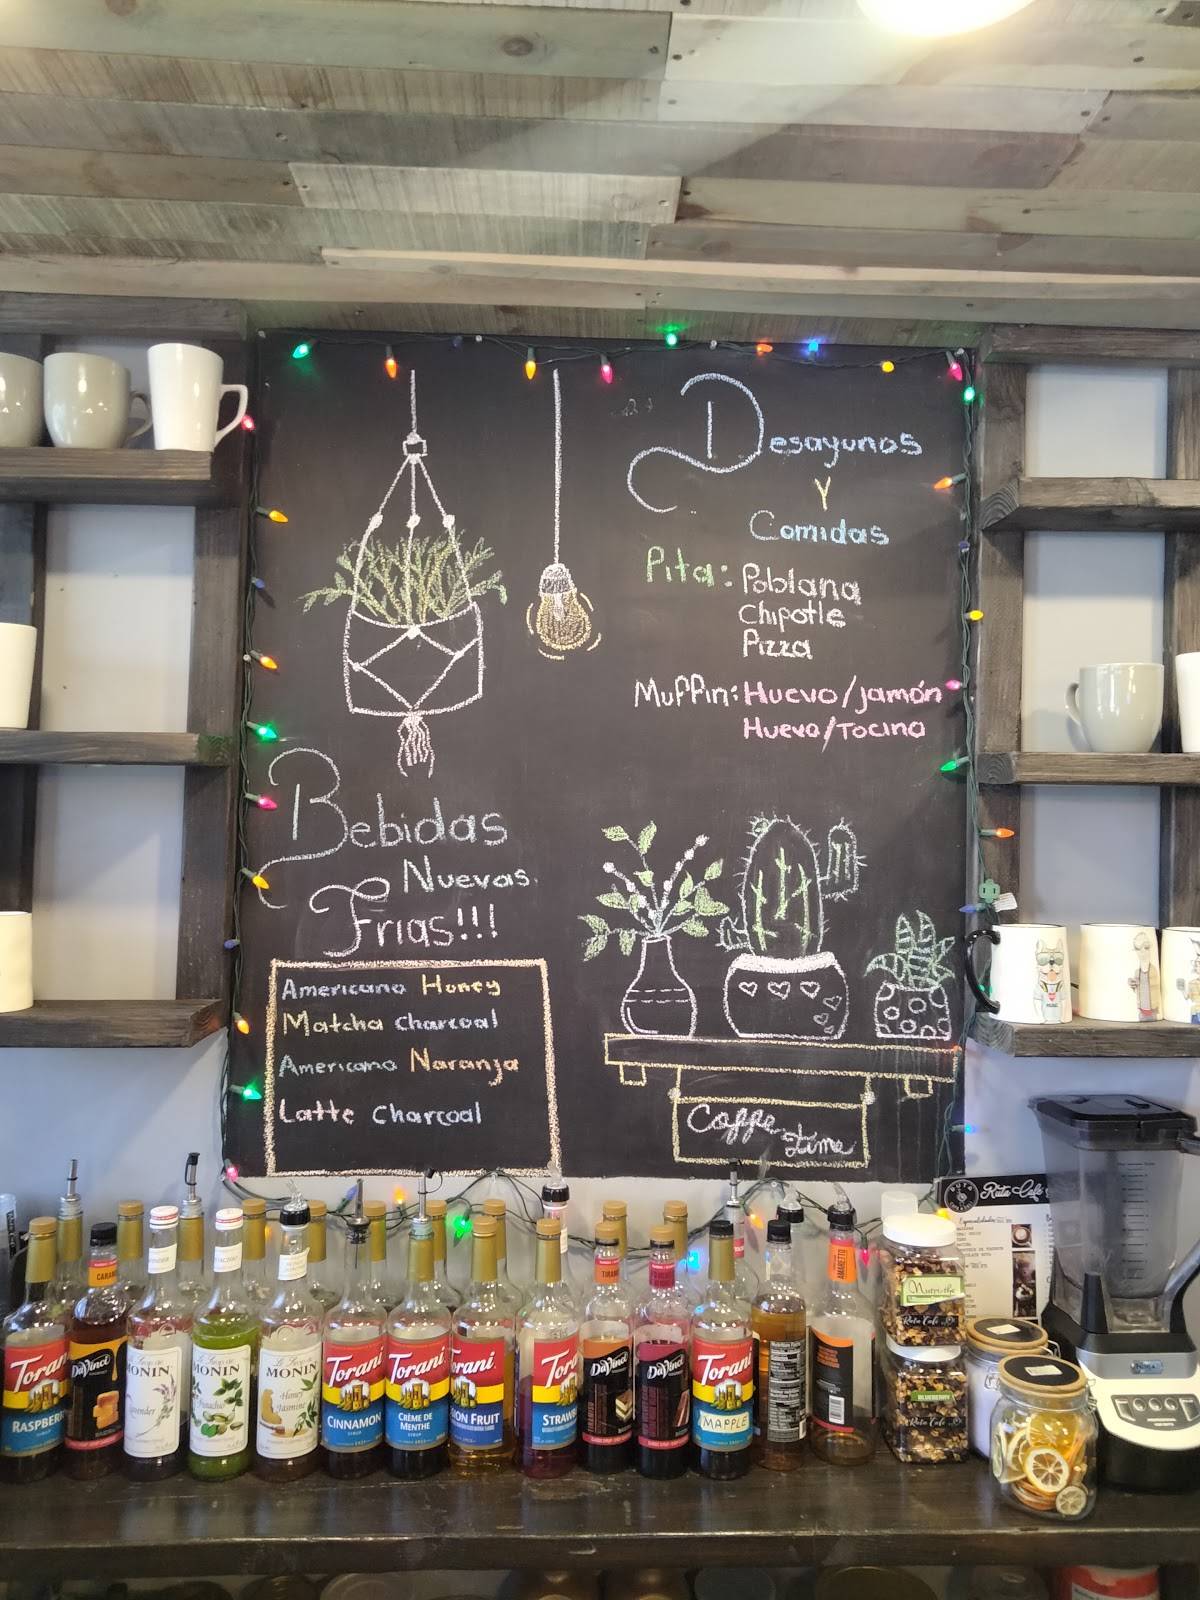 Desayunos
Y
Comidas
Pita: Poblana
Chipotle
Pizza
Muffin: Huevo/jamón
Huevo/Tocino
Bebidas
Nuevas
Frias!!!
Americano Honey
Matcha charcoal
Americano Naranja
Latte charcoal
Caffe
time
Ruta Café
Torani
RASPBERR
DaVinci
MONIN
MONIN
Pistachio
MONIN
Honey
Jasmine
Torani
CINNAMON
SYRUP
Torani
CRÈME DE
MENTHE
Torani
ION FRUIT
STRAWB
TIRAM
DaVinci
DaVinci
Torani
MAPPLE
AMARETTO
Ruta Café
BLUEBERRY
Ruta Café